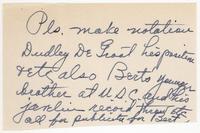 Pls. make notation
Dudley De Groot his position
& etc also Bert's younger
brother at U.S.C. and his
javelin record
all for publicity for Bert